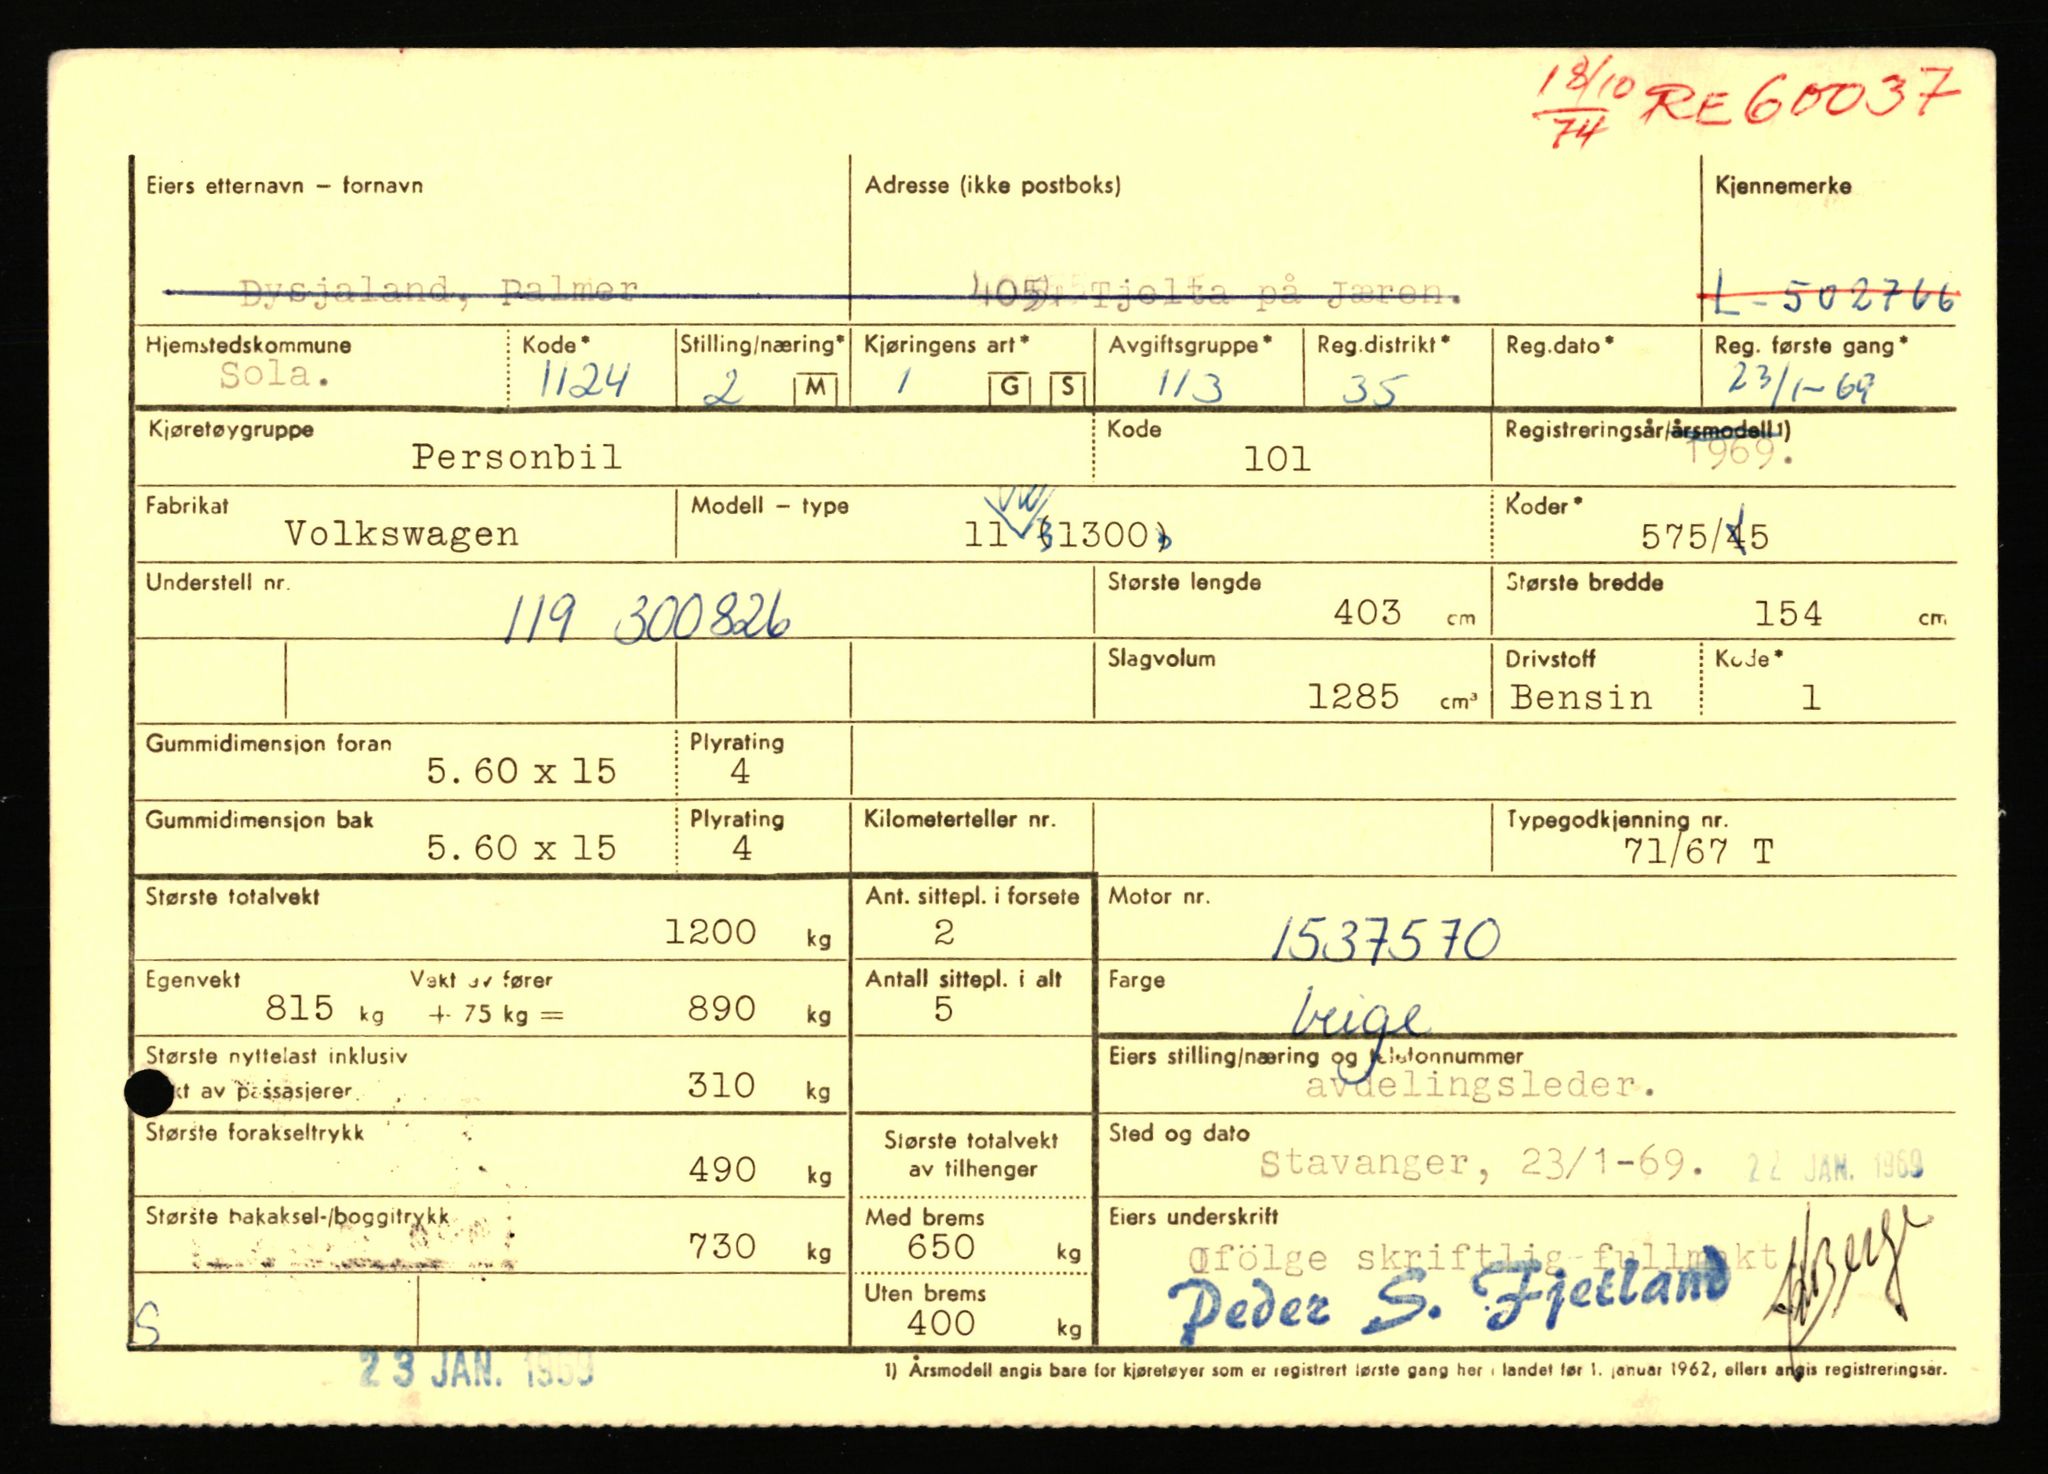 18/10 74 RE 60037
Eiers etternavn – fornavn Adresse (ikke postboks) Kjennemerke
Dysjaland, Palmer 4055 Tjelta på Jæren. L-502766
Hjemstedskommune Kode* Stilling/næring* Kjøringens art* Avgiftsgruppe* Reg.distrikt* Reg.dato* Reg. første gang*
Sola. 1124 2 M 1 G S 113 35 23/1-69
Kjøretøygruppe Kode Registreringsår/årsmodell 1)
Personbil 101 1969.
Fabrikat Modell – type Koder*
Volkswagen 11 (1300) 575/45
Understell nr. Største lengde Største bredde
119 300826 403 cm 154 cm
Slagvolum Drivstoff Kode*
1285 cm³ Bensin 1
Gummidimensjon foran Plyrating
5.60 x 15 4
Gummidimensjon bak Plyrating Kilometerteller nr. Typegodkjenning nr.
5.60 x 15 4 71/67 T
Største totalvekt Ant. sittepl. i forsete Motor nr.
1200 kg 2 1537570
Egenvekt Vekt av fører Antall sittepl. i alt Farge
815 kg + 75 kg = 890 kg 5 beige
Største nyttelast inklusiv Eiers stilling/næring og telefonnummer
kt av passasjerer 310 kg avdelingsleder.
Største forakseltrykk Største totalvekt Sted og dato
490 kg av tilhenger Stavanger, 23/1-69. 22 JAN. 1969
Største bakaksel-/boggitrykk Med brems Eiers underskrift
730 kg 650 kg ifölge skriftlig fullmakt
Uten brems Peder S. Fjetland
S 400 kg
23 JAN. 1969 1) Årsmodell angis bare for kjøretøyer som er registrert første gang her i landet før 1. januar 1962, ellers angis registreringsår.